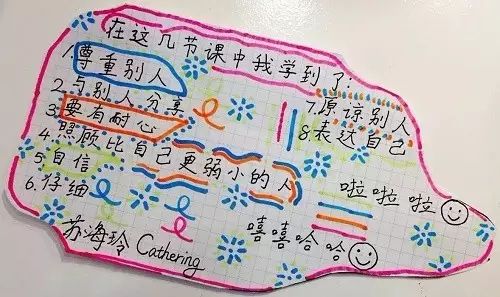 在这几节课中我学到了
1.尊重别人
2.与别人分享
3.要有耐心
4.照顾比自己更弱小的人
5.自信
6.仔细
7.原谅别人
8.表达自己
啦啦啦
嘻嘻哈哈
苏海玲 Cathering